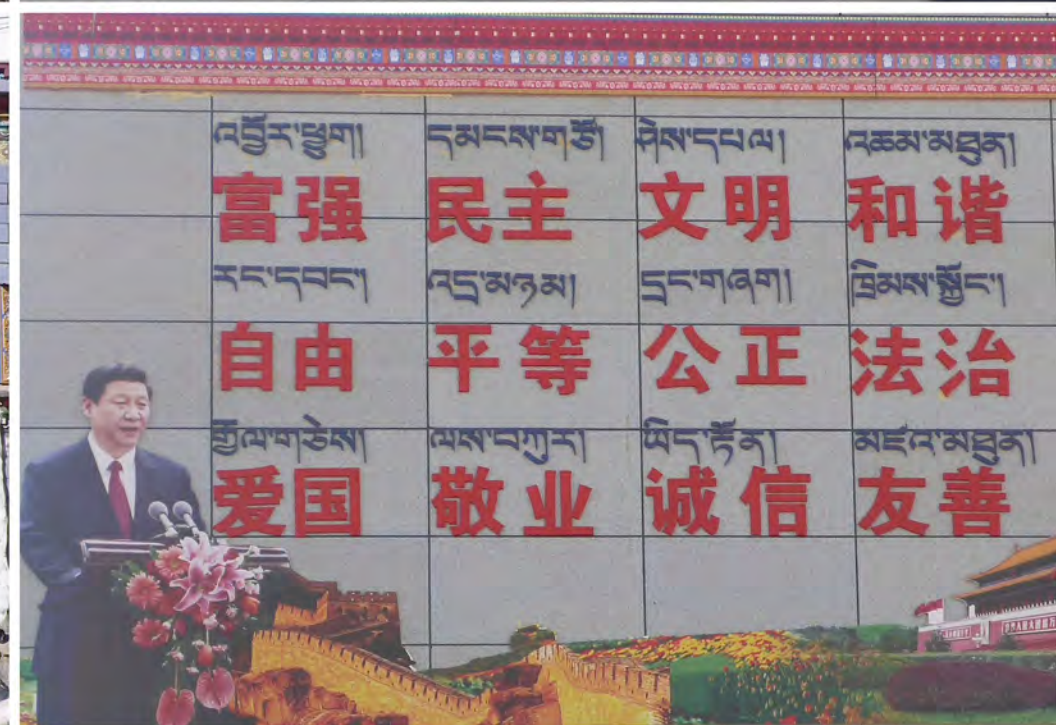 འབྱོར་ཕྱུག། དམངས་གཙོ། ཤེས་དཔལ། འཆམ་མཐུན།
富强 民主 文明 和谐
རང་དབང་། འདྲ་མཉམ། དྲང་གཞག། ཁྲིམས་སྐྱོང་།
自由 平等 公正 法治
རྒྱལ་གཅེས། ལས་བཀུར། ཡིད་རྟོན། མཛའ་མཐུན།
爱国 敬业 诚信 友善